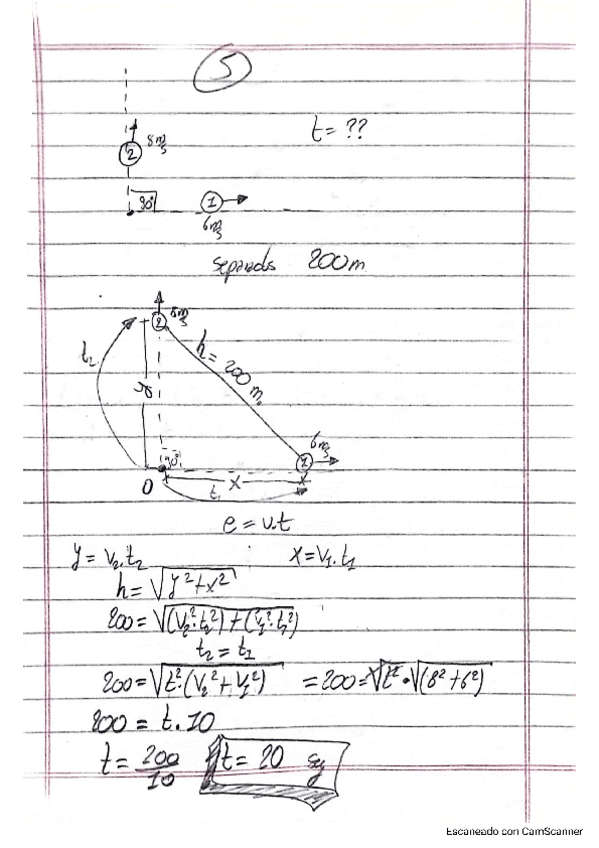 5
t = ??
2
8 m/s
90°
1
6 m/s
separados 200 m
2
8 m/s
t₂
y
h = 200 m.
90°
6 m/s
1
0
x
t₁
e = v.t
y = v₂.t₂ x = v₁.t₁
h = √(y² + x²)
200 = √((v₂².t₂²) + (v₁².t₁²))
t₂ = t₁
200 = √(t².(v₂² + v₁²)) = 200 = √t² • √(8² + 6²)
200 = t.10
t = 200/10 t = 20 sg
Escaneado con CamScanner